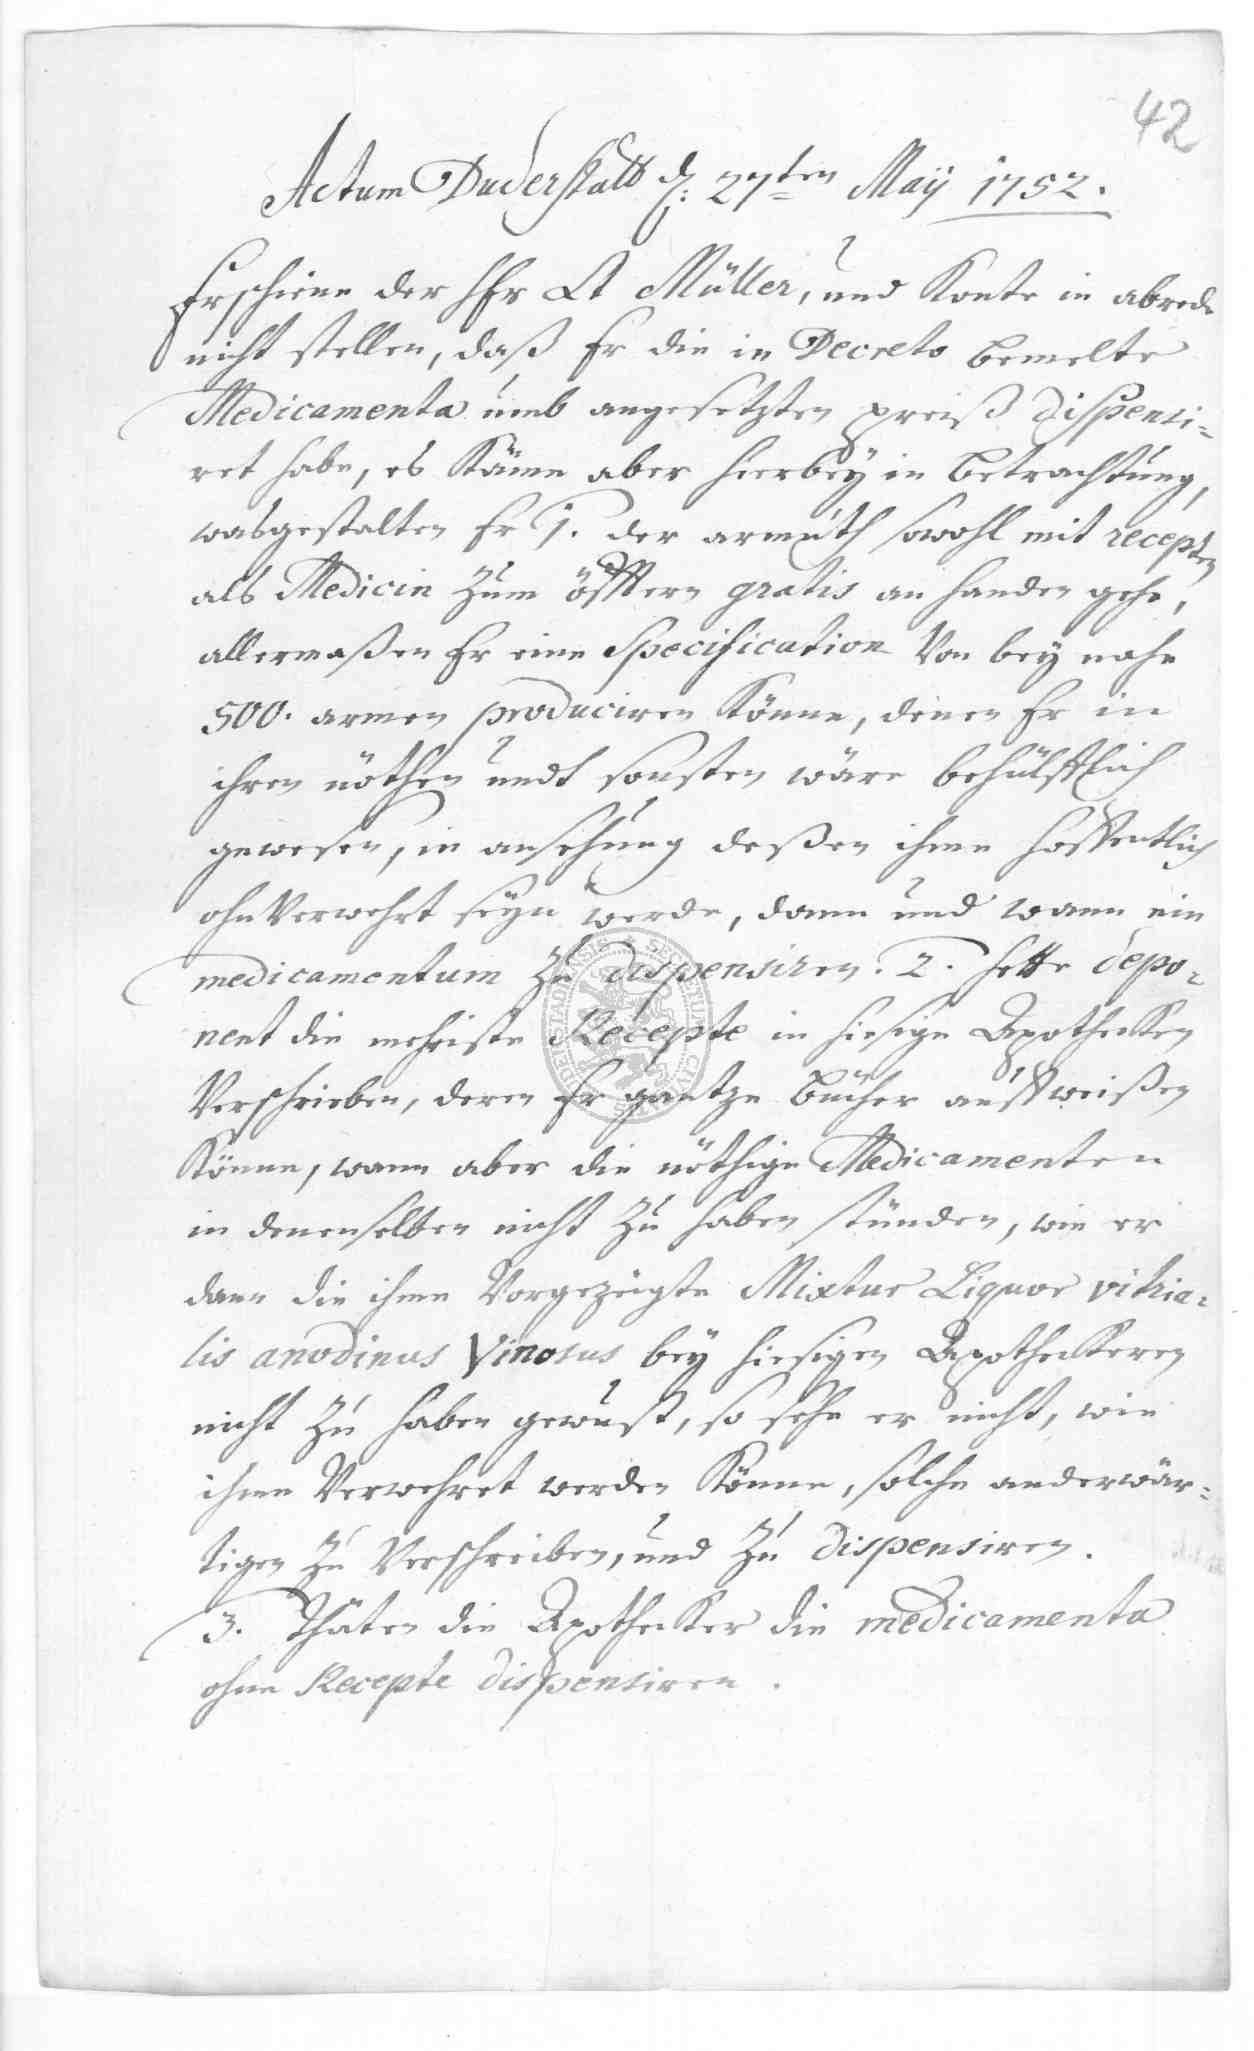 42
Actum Duderstatt d. 27ten Maÿ 1752.
Erschiene der Hr Lt Müller, und Konte in abrede
nicht stellen, daß Er die in Decreto bemelte
Medicamenta umb angesetzten preiß dispensi-
ret habe, es Käme aber hierbeÿ in betrachtung,
wasgestalten Er 1. der armuth sowohl mit recepten
als Medicin zum öfftern gratis an handen gehe,
allermaßen Er eine Specification Von beÿ nahe
500. armen produciren Könne, denen Er in
ihren nöthen undt sonsten wäre behülfflich
gewesen, in ansehung deßen ihme hoffentlich
ohnVerwehrt seÿn werde, dann und wann ein
medicamentum zu dispensiren. 2. hette depo-
nent die mehriste Recepte in hiesige Apothecken
Verschrieben, deren Er gantze bücher auffweißen
Könne, wann aber die nöthige Medicamenten
in denenselben nicht zu haben stünden, wie er
dann die ihme Vorgezeigte Mixtur Liquor vitrio-
lis anodinus Vinosus beÿ hiesigen Apotheckeren
nicht zu haben gewust, so sehe er nicht, wie
ihme Verwehret werden Könne, solche anderwär-
tigen zu Verschreiben, und zu dispensiren.
3. Thäten die Apothecker die medicamenta
ohne Recepte dispensiren.